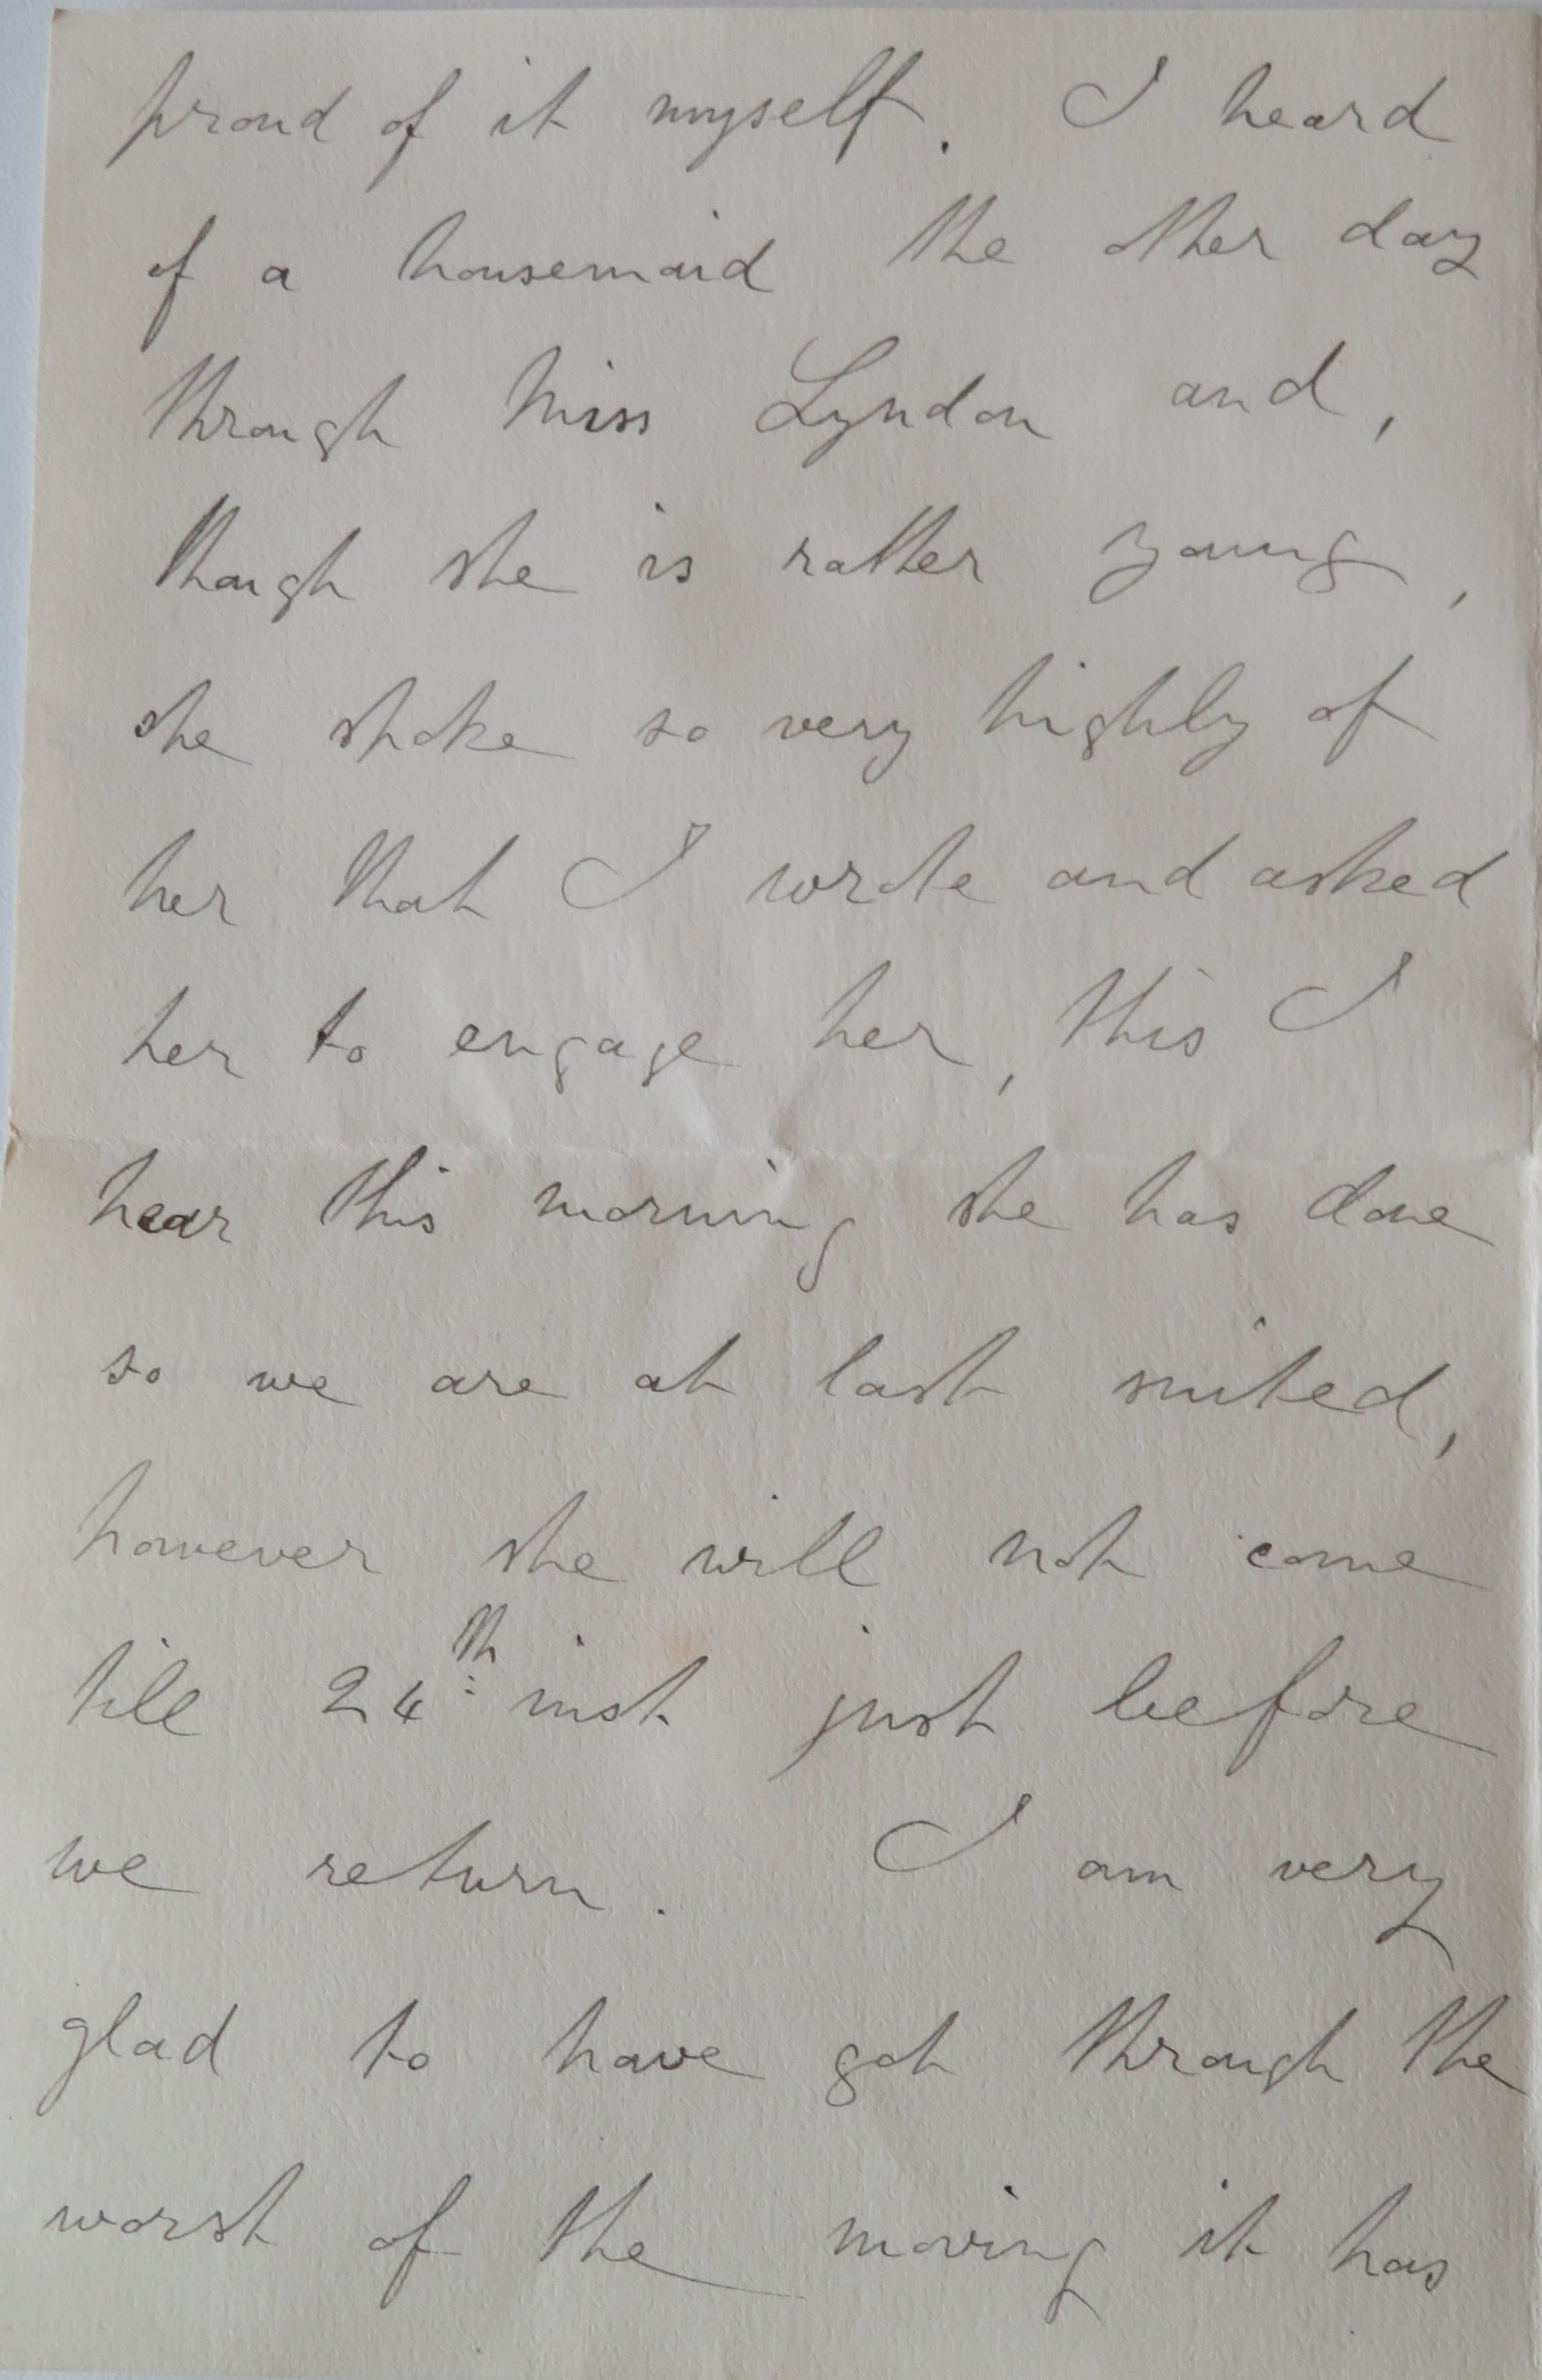 proud of it myself. I heard
of a housemaid the other day
through Miss Lyndon and,
though she is rather young,
she spoke so very highly of
her that I wrote and asked
her to engage her, this I
hear this morning she has done
so we are at last suited,
however she will not come
till 24th inst just before
we return. I am very
glad to have got through the
worst of the moving it has